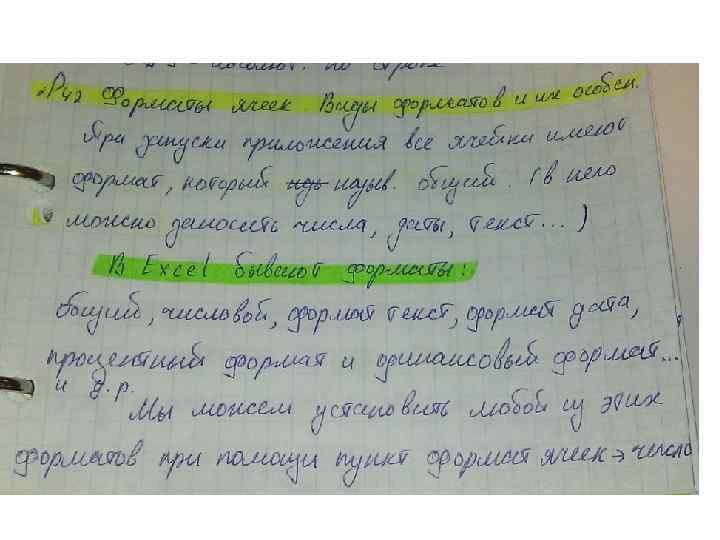 по строке
P42 Форматы ячеек Виды форматов и их особен.
При запуски приложения все ячейки имеют
формат, который назыв. общий. (в него
можно заносить числа, даты, текст...)
В Excel бывают форматы:
общий, числовой, формат текст, формат дата,
процентный формат и финансовый формат...
и д.р.
Мы можем установить любой из этих
форматов при помощи пункт формат ячеек → число